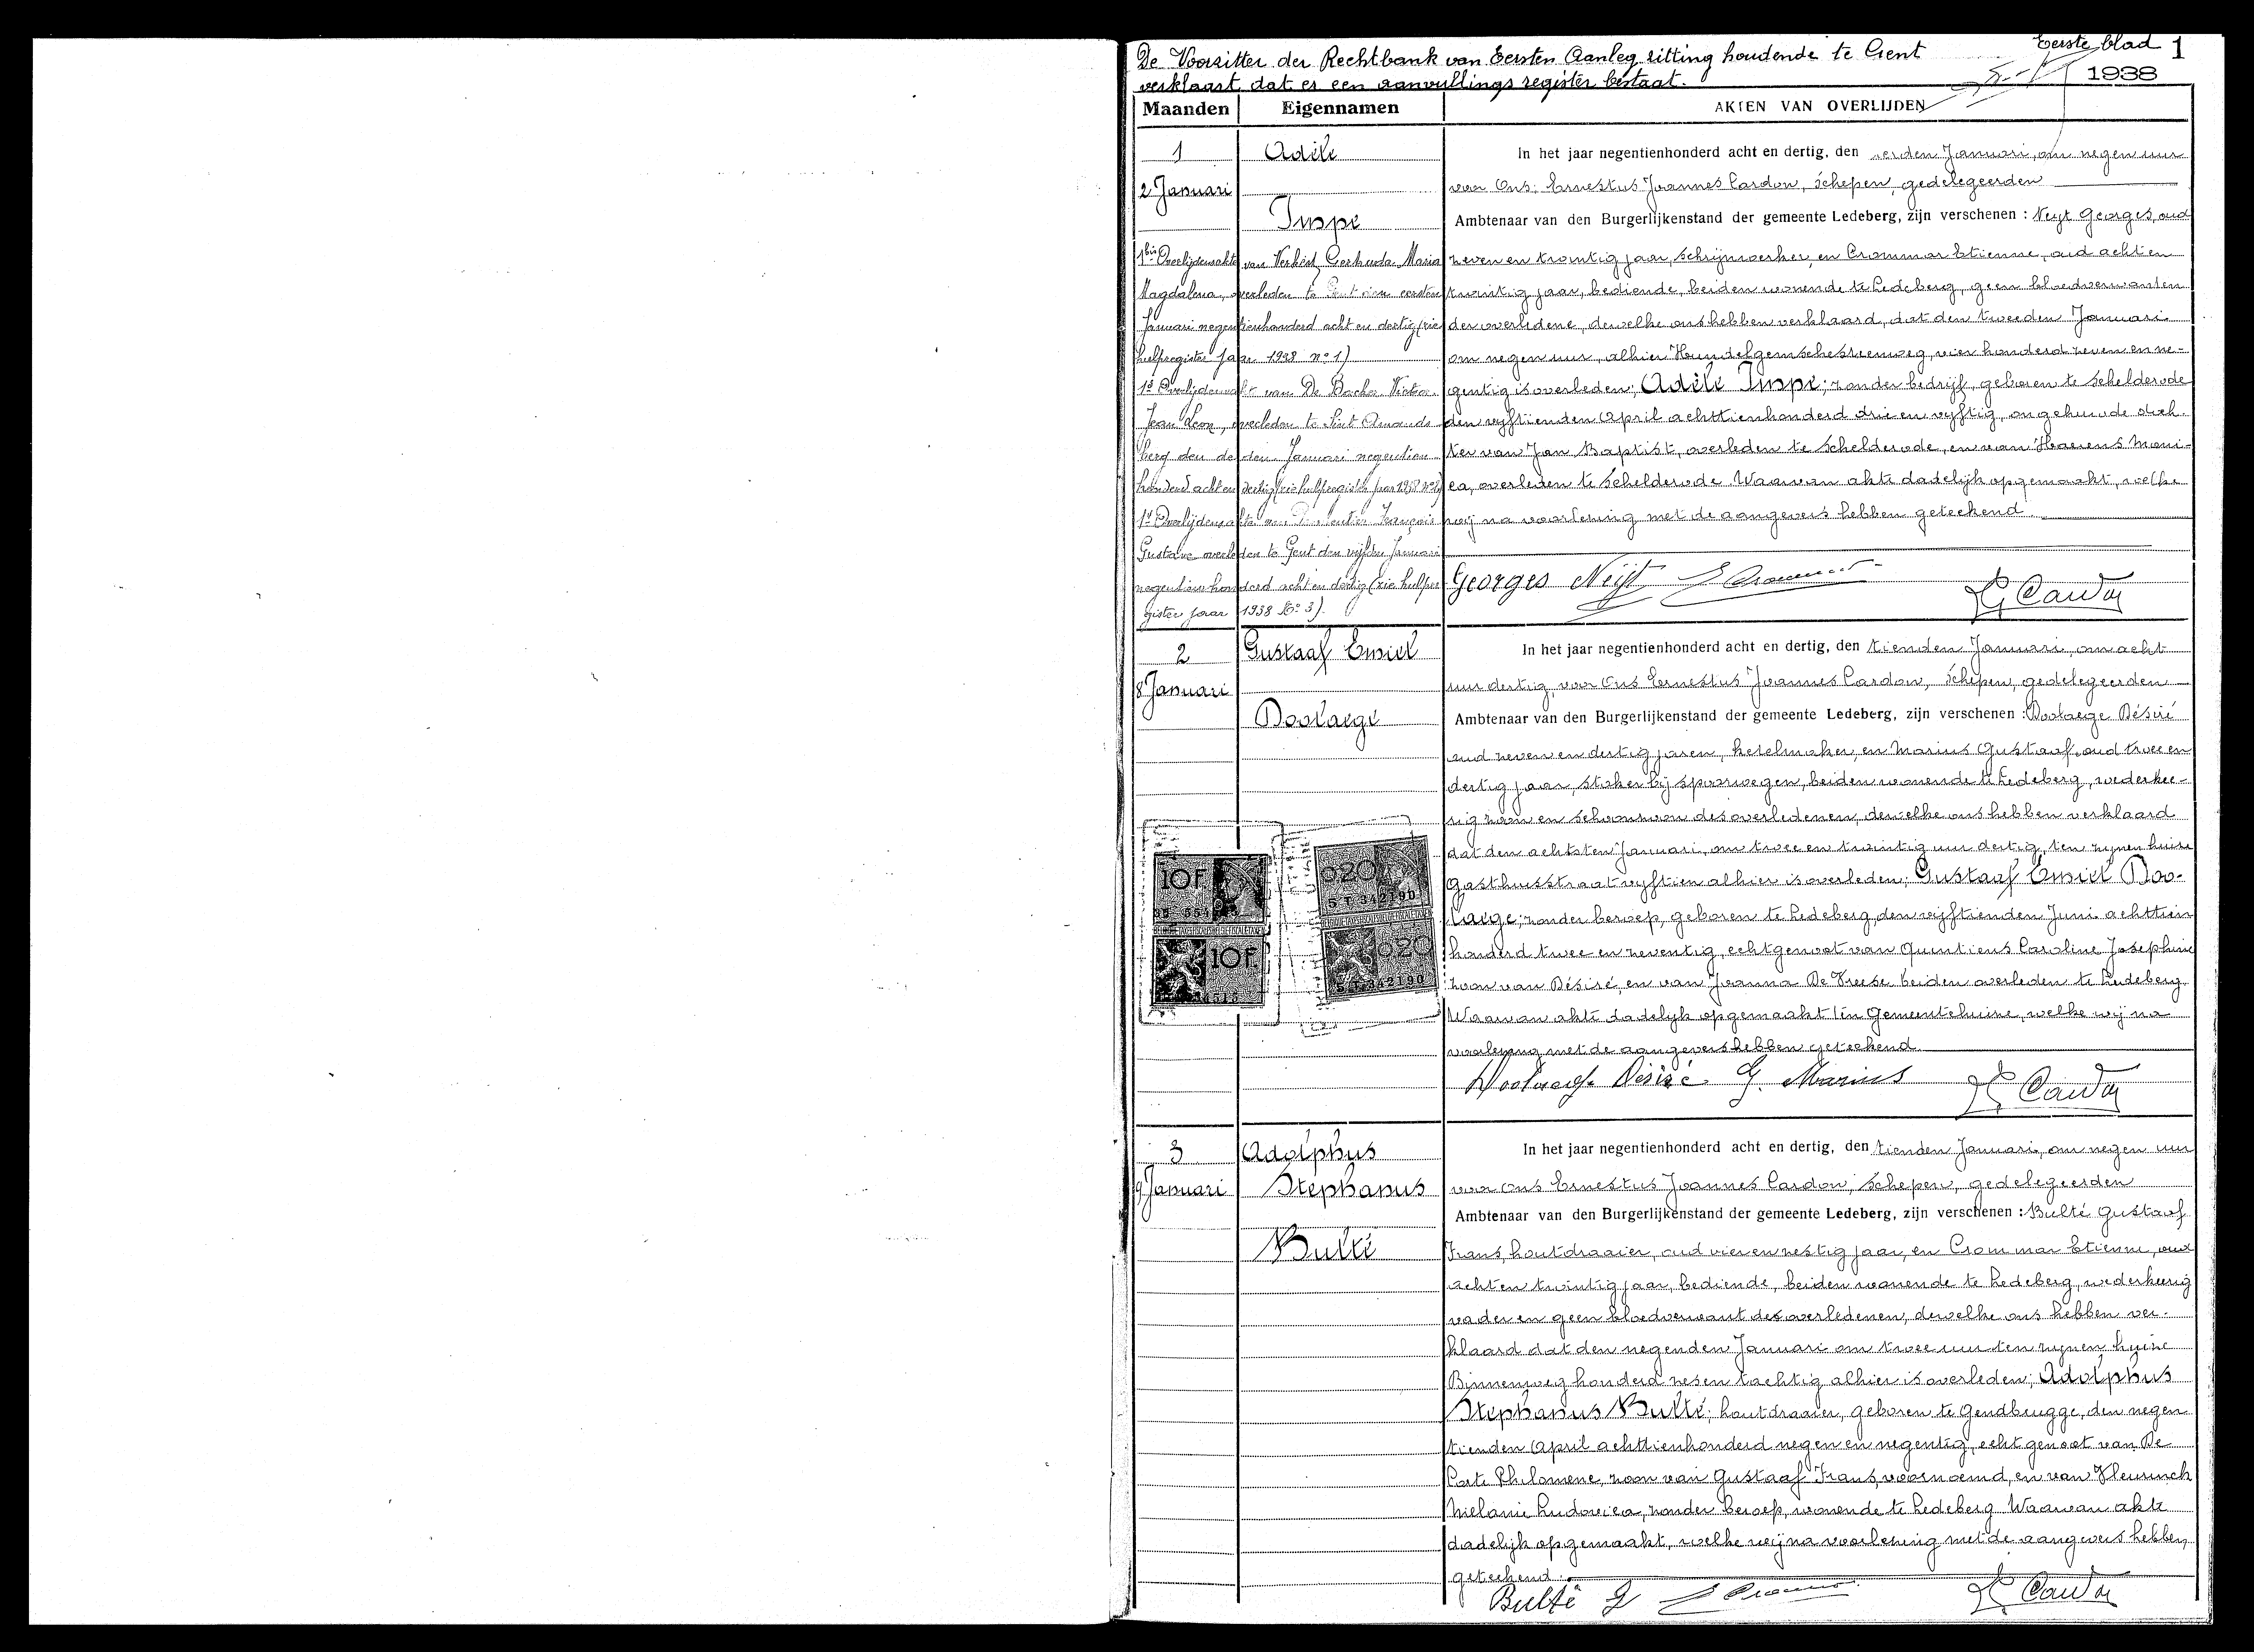 Eerste blad 1
De Voorzitter der Rechtbank van Eersten Aanleg zitting houdende te Gent
verklaart dat er een aanvullings register bestaat.
1938
Maanden Eigennamen AKTEN VAN OVERLIJDEN
1
2 Januari
Adèle
Impe
1bis Overlijdensakte van Verkest Gerhruda Maria
Magdalena, overleden te Gent den eersten
Januari negentienhonderd acht en dertig (zie
hulpregister jaar 1938 no 1)
1 Overlijdensakt van De Backer Victor
Jean Leon, overleden te Sint Amands
berg den de den Januari negentien
honderd acht en dertig (zie hulpregister jaar 1938 no 2)
1 Overlijdensakte van François
Gustave overleden te Gent den vijfden Januari
negentienhonderd acht en dertig (zie hulpre
gister jaar 1938 No 3).
In het jaar negentienhonderd acht en dertig, den erden Januari, om negen uur
voor Ons: Ernestus Joannes Cardon, Schepen, gedelegeerden
Ambtenaar van den Burgerlijkenstand der gemeente Ledeberg, zijn verschenen : Neyt Georges, oud
zeven en twintig jaar, schrijnwerker, en Crommar Etienne, oud acht en
twintig jaar, bediende, beiden wonende te Ledeberg, geen bloedverwanten
der overledene, dewelke ons hebben verklaard, dat den tweeden Januari
om negen uur, alhier Hundelgemschesteenweg, vier honderd zeven en ne-
gentig is overleden; Adèle Impe; zonder bedrijf, geboren te Schelderode
den vyftienden April achttienhonderd drie en vyftig, ongehuwde doch
ter van Jan Baptist, overleden te Schelderode, en van Haerens Moni-
ca, overleden te Schelderode. Waarvan akte dadelijk opgemaakt, welke
wij na voorlezing met de aangevers hebben geteekend
Georges Neyt E Crommar E Cardon
2
8 Januari
Gustaaf Emiel
Doolaege
In het jaar negentienhonderd acht en dertig, den tienden Januari, om acht
uur dertig, voor Ons Ernestus Joannes Cardon, Schepen, gedelegeerden
Ambtenaar van den Burgerlijkenstand der gemeente Ledeberg, zijn verschenen : Doolaege Désiré
oud zeven en dertig jaren, ketelmaker, en Marius Gustaaf, oud twee en
dertig jaar, stoker bij spoorwegen, beiden wonende te Ledeberg, wederkee-
rig zoon en schoonzoon des overledenen, dewelke ons hebben verklaard
dat den achtsten Januari, om twee en twintig uur dertig, ten zynen huize
Gasthuisstraat vyftien alhier is overleden; Gustaaf Emiel Doo-
laege; zonder beroep, geboren te Ledeberg, den vyftienden Juni achttien
honderd twee en zeventig, echtgenoot van Quintiens Caroline Josephine
zoon van Désiré, en van Joanna De Vreese beiden overleden te Ledeberg
Waarvan akte dadelyk opgemaakt ten Gemeentehuize, welke wij na
voorlezing met de aangevers hebben geteekend
Doolaege Désiré G. Marius E Cardon
10F
10F
0.20
5 T. 342190
0.20
5 T. 342190
3
9 Januari
Adolphus
Stephanus
Bulté
In het jaar negentienhonderd acht en dertig, den tienden Januari, om negen uur
voor ons Ernestus Joannes Cardon, schepen, gedelegeerden
Ambtenaar van den Burgerlijkenstand der gemeente Ledeberg, zijn verschenen : Bulté Gustaaf
Frans, houtdraaier, oud vier en zestig jaar, en Crommar Etienne, oud
acht en twintig jaar, bediende, beiden wonende te Ledeberg, wederkeerig
vader en geen bloedverwant des overledenen, dewelke ons hebben ver-
klaard dat den negenden Januari om twee uur ten zynen huize
Binnenweg honderd zes en tachtig alhier is overleden; Adolphus
Stephanus Bulté; houtdraaier, geboren te Gendbrugge, den negen
tienden April achttienhonderd negen en negentig, echtgenoot van De
Corte Philomene, zoon van Gustaaf Frans, voornoemd, en van Vleurinck
Melanie Ludovica, zonder beroep, wonende te Ledeberg Waarvan akte
dadelijk opgemaakt, welke wij na voorlezing met de aangevers hebben,
geteekend.
Bulté G E Crommar E Cardon